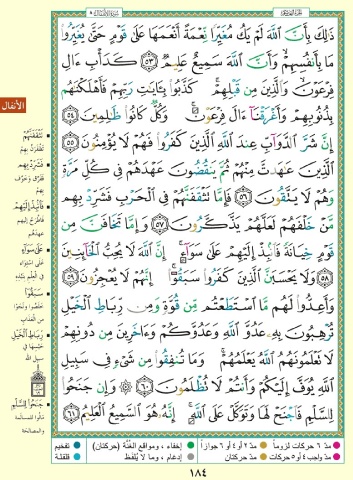 ذَٰلِكَ بِأَنَّ ٱللَّهَ لَمْ يَكُ مُغَيِّرًا نِّعْمَةً أَنْعَمَهَا عَلَىٰ قَوْمٍ حَتَّىٰ يُغَيِّرُوا۟
مَا بِأَنفُسِهِمْ ۙ وَأَنَّ ٱللَّهَ سَمِيعٌ عَلِيمٌ ٥٣ كَدَأْبِ ءَالِ
فِرْعَوْنَ ۙ وَٱلَّذِينَ مِن قَبْلِهِمْ ۚ كَذَّبُوا۟ بِـَٔايَـٰتِ رَبِّهِمْ فَأَهْلَكْنَـٰهُم
بِذُنُوبِهِمْ وَأَغْرَقْنَآ ءَالَ فِرْعَوْنَ ۚ وَكُلٌّ كَانُوا۟ ظَـٰلِمِينَ ٥٤
إِنَّ شَرَّ ٱلدَّوَآبِّ عِندَ ٱللَّهِ ٱلَّذِينَ كَفَرُوا۟ فَهُمْ لَا يُؤْمِنُونَ ٥٥
ٱلَّذِينَ عَـٰهَدتَّ مِنْهُمْ ثُمَّ يَنقُضُونَ عَهْدَهُمْ فِى كُلِّ مَرَّةٍ
وَهُمْ لَا يَتَّقُونَ ٥٦ فَإِمَّا تَثْقَفَنَّهُمْ فِى ٱلْحَرْبِ فَشَرِّدْ بِهِم
مَّنْ خَلْفَهُمْ لَعَلَّهُمْ يَذَّكَّرُونَ ٥٧ وَإِمَّا تَخَافَنَّ مِن
قَوْمٍ خِيَانَةً فَٱنۢبِذْ إِلَيْهِمْ عَلَىٰ سَوَآءٍ ۚ إِنَّ ٱللَّهَ لَا يُحِبُّ ٱلْخَآئِنِينَ
٥٨ وَلَا يَحْسَبَنَّ ٱلَّذِينَ كَفَرُوا۟ سَبَقُوٓا۟ ۚ إِنَّهُمْ لَا يُعْجِزُونَ ٥٩
وَأَعِدُّوا۟ لَهُم مَّا ٱسْتَطَعْتُم مِّن قُوَّةٍ وَمِن رِّبَاطِ ٱلْخَيْلِ
تُرْهِبُونَ بِهِۦ عَدُوَّ ٱللَّهِ وَعَدُوَّكُمْ وَءَاخَرِينَ مِن دُونِهِمْ
لَا تَعْلَمُونَهُمُ ٱللَّهُ يَعْلَمُهُمْ ۚ وَمَا تُنفِقُوا۟ مِن شَىْءٍ فِى سَبِيلِ
ٱللَّهِ يُوَفَّ إِلَيْكُمْ وَأَنتُمْ لَا تُظْلَمُونَ ٦٠ وَإِن جَنَحُوا۟
لِلسَّلْمِ فَٱجْنَحْ لَهَا وَتَوَكَّلْ عَلَى ٱللَّهِ ۚ إِنَّهُۥ هُوَ ٱلسَّمِيعُ ٱلْعَلِيمُ ٦١
الأنفال
تَثْقَفَنَّهُمْ
تظفرنّ بهم
فَشَرِّدْ بِهِم
ففرّق وخوّف
بهم
فَٱنۢبِذْ إِلَيْهِمْ
فاطرح إليهم
عهدهم
عَلَىٰ سَوَآءٍ
على استواء
في العلم بنبذه
سَبَقُوا۟
من العذاب
رِّبَاطِ ٱلْخَيْلِ
سبيل الله
جَنَحُوا۟ لِلسَّلْمِ
مالوا للمسالمة
والمصالحة
مدّ ٦ حركات لزوماً
مدّ ٢ أو ٤ أو ٦ جوازاً
إخفاء، ومواقع الغنّة (حركتان)
تفخيم
مدّ واجب ٤ أو ٥ حركات
مدّ حركتان
إدغام، وما لا يُلفظ
قلقلة
١٨٤